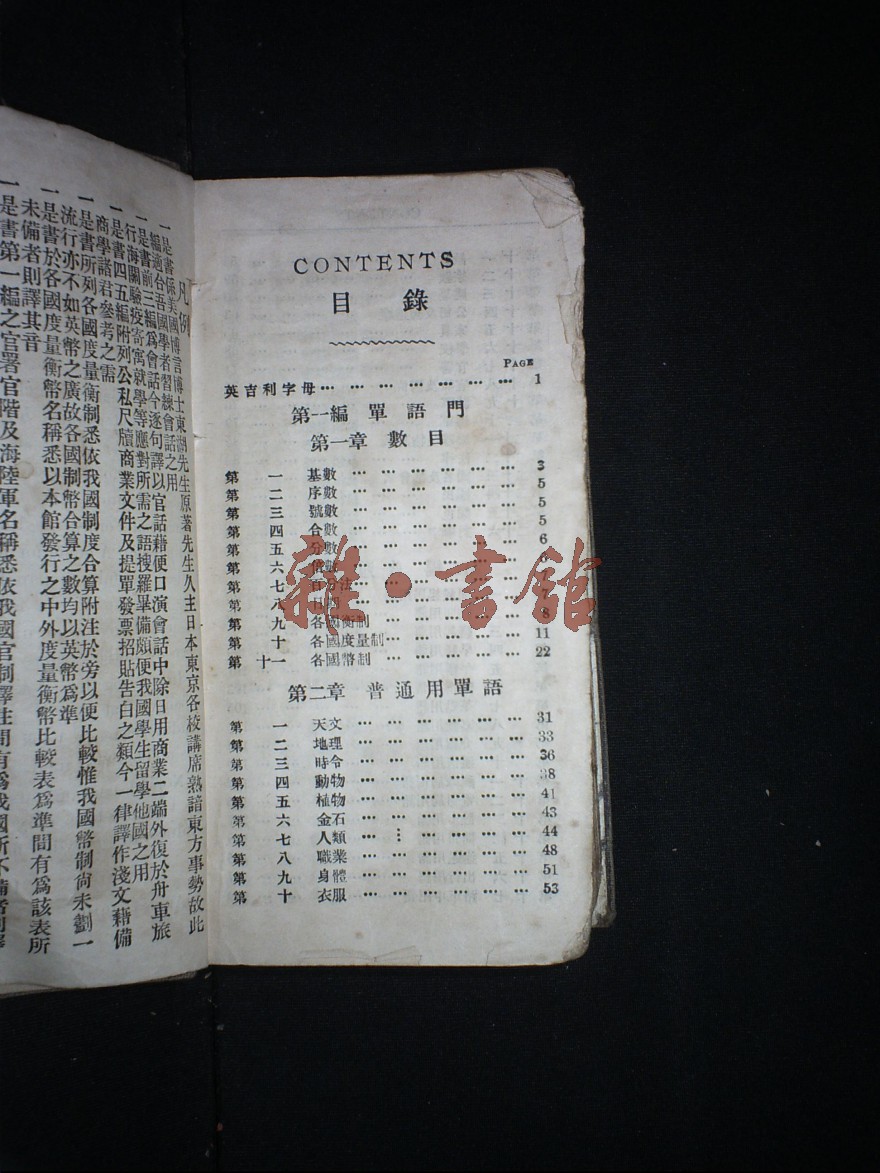 CONTENTS
目錄
PAGE
英吉利字母 … … … … … … … 1
第一編 單語門
第一章 數目
第一 基數 … … … … … … 3
第二 序數 … … … … … … 5
第三 號數 … … … … … … 5
第四 合數 … … … … … … 6
第五 分數
第六 數
第七 百分法 7
第八 8
第九 各國衡制 8
第十 各國度量制 … … … … … 11
第十一 各國幣制 … … … … … 22
第二章 普通用單語
第一 天文 … … … … … … 31
第二 地理 … … … … … … 33
第三 時令 … … … … … … 36
第四 動物 … … … … … … 38
第五 植物 … … … … … … 41
第六 金石 … … … … … … 43
第七 人類 … … … … … … 44
第八 職業 … … … … … … 48
第九 身體 … … … … … … 51
第十 衣服 … … … … … … 53
雜·書館
凡例
一是書係美國博言博士東湖先生原著先生久主日本東京各校講席熟諳東方事勢故此
編適合吾國學者習練會話之用
一是書前三編爲會話今逐句譯以官話藉便口演會話中除日用商業二端外復於舟車旅
行海關驗疫寄寓就學等應對所需之語搜羅畢備頗便我國學生留學他國之用
一是書四五編附列公私尺牘商業文件及提單發票招貼告白之類今一律譯作淺文藉備
商學諸君參考之需
一是書所列各國度量衡制悉依我國制度合算附注於旁以便比較惟我國幣制尚未劃一
流行亦不如英幣之廣故各國制幣合算之數均以英幣爲準
一是書於各國度量衡幣名稱悉以本館發行之中外度量衡幣比較表爲準間有爲該表所
未備者則譯其音
一是書第一編之官署官階及海陸軍名稱悉依我國官制譯注間有爲我國所不備者則譯